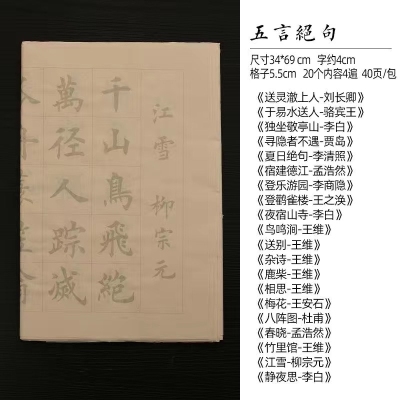 五言絕句
尺寸34*69 cm 字约4cm
格子5.5cm 20个内容4遍 40页/包
《送灵澈上人-刘长卿》
《于易水送人-骆宾王》
《独坐敬亭山-李白》
《寻隐者不遇-贾岛》
《夏日绝句-李清照》
《宿建德江-孟浩然》
《登乐游园-李商隐》
《登鹳雀楼-王之涣》
《夜宿山寺-李白》
《鸟鸣涧-王维》
《送别-王维》
《杂诗-王维》
《鹿柴-王维》
《相思-王维》
《梅花-王安石》
《八阵图-杜甫》
《春晓-孟浩然》
《竹里馆-王维》
《江雪-柳宗元》
《静夜思-李白》
江雪 柳宗元
千山鳥飛絕
萬径人踪滅